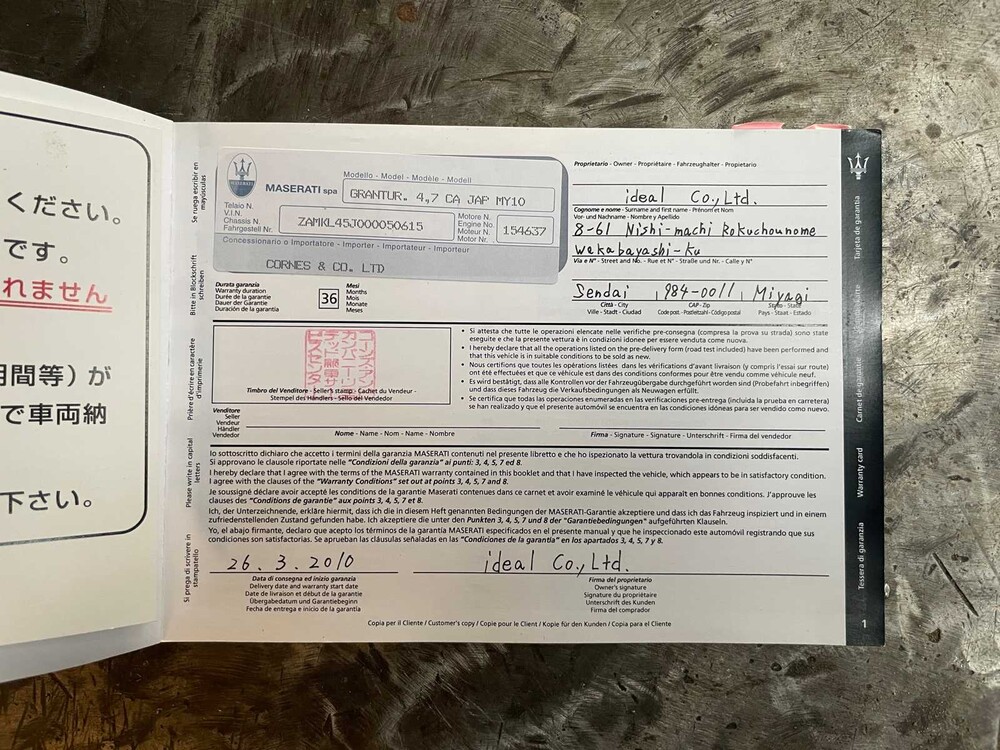 ください。
です。
れません
期間等）が
で車両納
下さい。
Se ruega escribir en mayúsculas
Bitte in Blockschrift schreiben
Prière d'écrire en caractère d'imprimerie
Please write in capital letters
Si prega di scrivere in stampatello
MASERATI spa
Modello - Model - Modèle - Modell
GRANTUR. 4,7 CA JAP MY10
Telaio N.
V.I.N.
Chassis N.
Fahrgestell Nr.
ZAMKL45J000050615
Motore N.
Engine No.
Moteur N.
Motor Nr.
154637
Concessionario o Importatore - Importer - Importateur - Importeur
CORNES & CO. LTD
Durata garanzia
Warranty duration
Durée de la garantie
Dauer der Garantie
Duración de la garantía
36
Mesi
Months
Mois
Monate
Meses
Proprietario - Owner - Propriétaire - Fahrzeughalter - Propietario
ideal Co., Ltd.
Cognome e nome - Surname and first name - Prénom et Nom
Vor- und Nachname - Nombre y Apellido
8-61 Nishi-machi Rokuchounome
Wakabayashi-Ku
Via e N° - Street and No. - Rue et N° - Straße und Nr. - Calle y N°
Sendai 984-0011 Miyagi
Città - City
Ville - Stadt - Ciudad
CAP - Zip
Code post. - Postleitzahl - Código postal
Stato - State
Pays - Staat - Estado
コーンズ・アンド・
カンパニー・リミ
テッド
Timbro del Venditore - Seller's stamp - Cachet du Vendeur -
Stempel des Händlers - Sello del Vendedor
• Si attesta che tutte le operazioni elencate nelle verifiche pre-consegna (compresa la prova su strada) sono state
eseguite e che la presente vettura è in condizioni idonee per essere venduta come nuova.
• I hereby declare that all the operations listed on the pre-delivery form (road test included) have been performed and
that this vehicle is in suitable conditions to be sold as new.
• Nous certifions que toutes les opérations listées dans les vérifications d'avant livraison (y compris l'essai sur route)
ont été effectuées et que ce véhicule est dans des conditions conformes pour être vendu comme véhicule neuf.
• Es wird bestätigt, daß alle Kontrollen vor der Fahrzeugübergabe durchgeführt worden sind (Probefahrt inbegriffen)
und dass dieses Fahrzeug die Verkaufsbedingungen als Neuwagen erfüllt.
• Se certifica que todas las operaciones enumeradas en las verificaciones pre-entrega (incluida la prueba en carretera)
se han realizado y que el presente automóvil se encuentra en las condiciones idóneas para ser vendido como nuevo.
Venditore
Seller
Vendeur
Händler
Vendedor
Nome - Name - Nom - Name - Nombre
Firma - Signature - Signature - Unterschrift - Firma del vendedor
Io sottoscritto dichiaro che accetto i termini della garanzia MASERATI contenuti nel presente libretto e che ho ispezionato la vettura trovandola in condizioni soddisfacenti.
Si approvano le clausole riportate nelle "Condizioni della garanzia" ai punti: 3, 4, 5, 7 ed 8.
I hereby declare that I agree with the terms of the MASERATI warranty contained in this booklet and that I have inspected the vehicle, which appears to be in satisfactory condition.
I agree with the clauses of the "Warranty Conditions" set out at points 3, 4, 5, 7 and 8.
Je soussigné déclare avoir accepté les conditions de la garantie Maserati contenues dans ce carnet et avoir examiné le véhicule qui apparaît en bonnes conditions. J'approuve les
clauses des "Conditions de garantie" aux points 3, 4, 5, 7 et 8.
Ich, der Unterzeichnende, erkläre hiermit, dass ich die in diesem Heft genannten Bedingungen der MASERATI-Garantie akzeptiere und dass ich das Fahrzeug inspiziert und in einem
zufriedenstellenden Zustand gefunden habe. Ich akzeptiere die unter den Punkten 3, 4, 5, 7 und 8 der "Garantiebedingungen" aufgeführten Klauseln.
Yo, el abajo firmante, declaro que acepto los términos de la garantía MASERATI especificados en el presente manual y que he inspeccionado este automóvil registrando que sus
condiciones son satisfactorias. Se aprueban las cláusulas señaladas en las "Condiciones de la garantía" en los apartados 3, 4, 5, 7 y 8.
26. 3. 2010
Data di consegna ed inizio garanzia
Delivery date and warranty start date
Date de livraison et début de la garantie
Übergabedatum und Garantiebeginn
Fecha de entrega e inicio de la garantía
ideal Co., Ltd.
Firma del proprietario
Owner's signature
Signature du propriétaire
Unterschrift des Kunden
Firma del comprador
Copia per il Cliente / Customer's copy / Copie pour le Client / Kopie für den Kunden / Copia para el Cliente
Tarjeta de garantía
Carnet de garantie
Warranty card
Tessera di garanzia
1